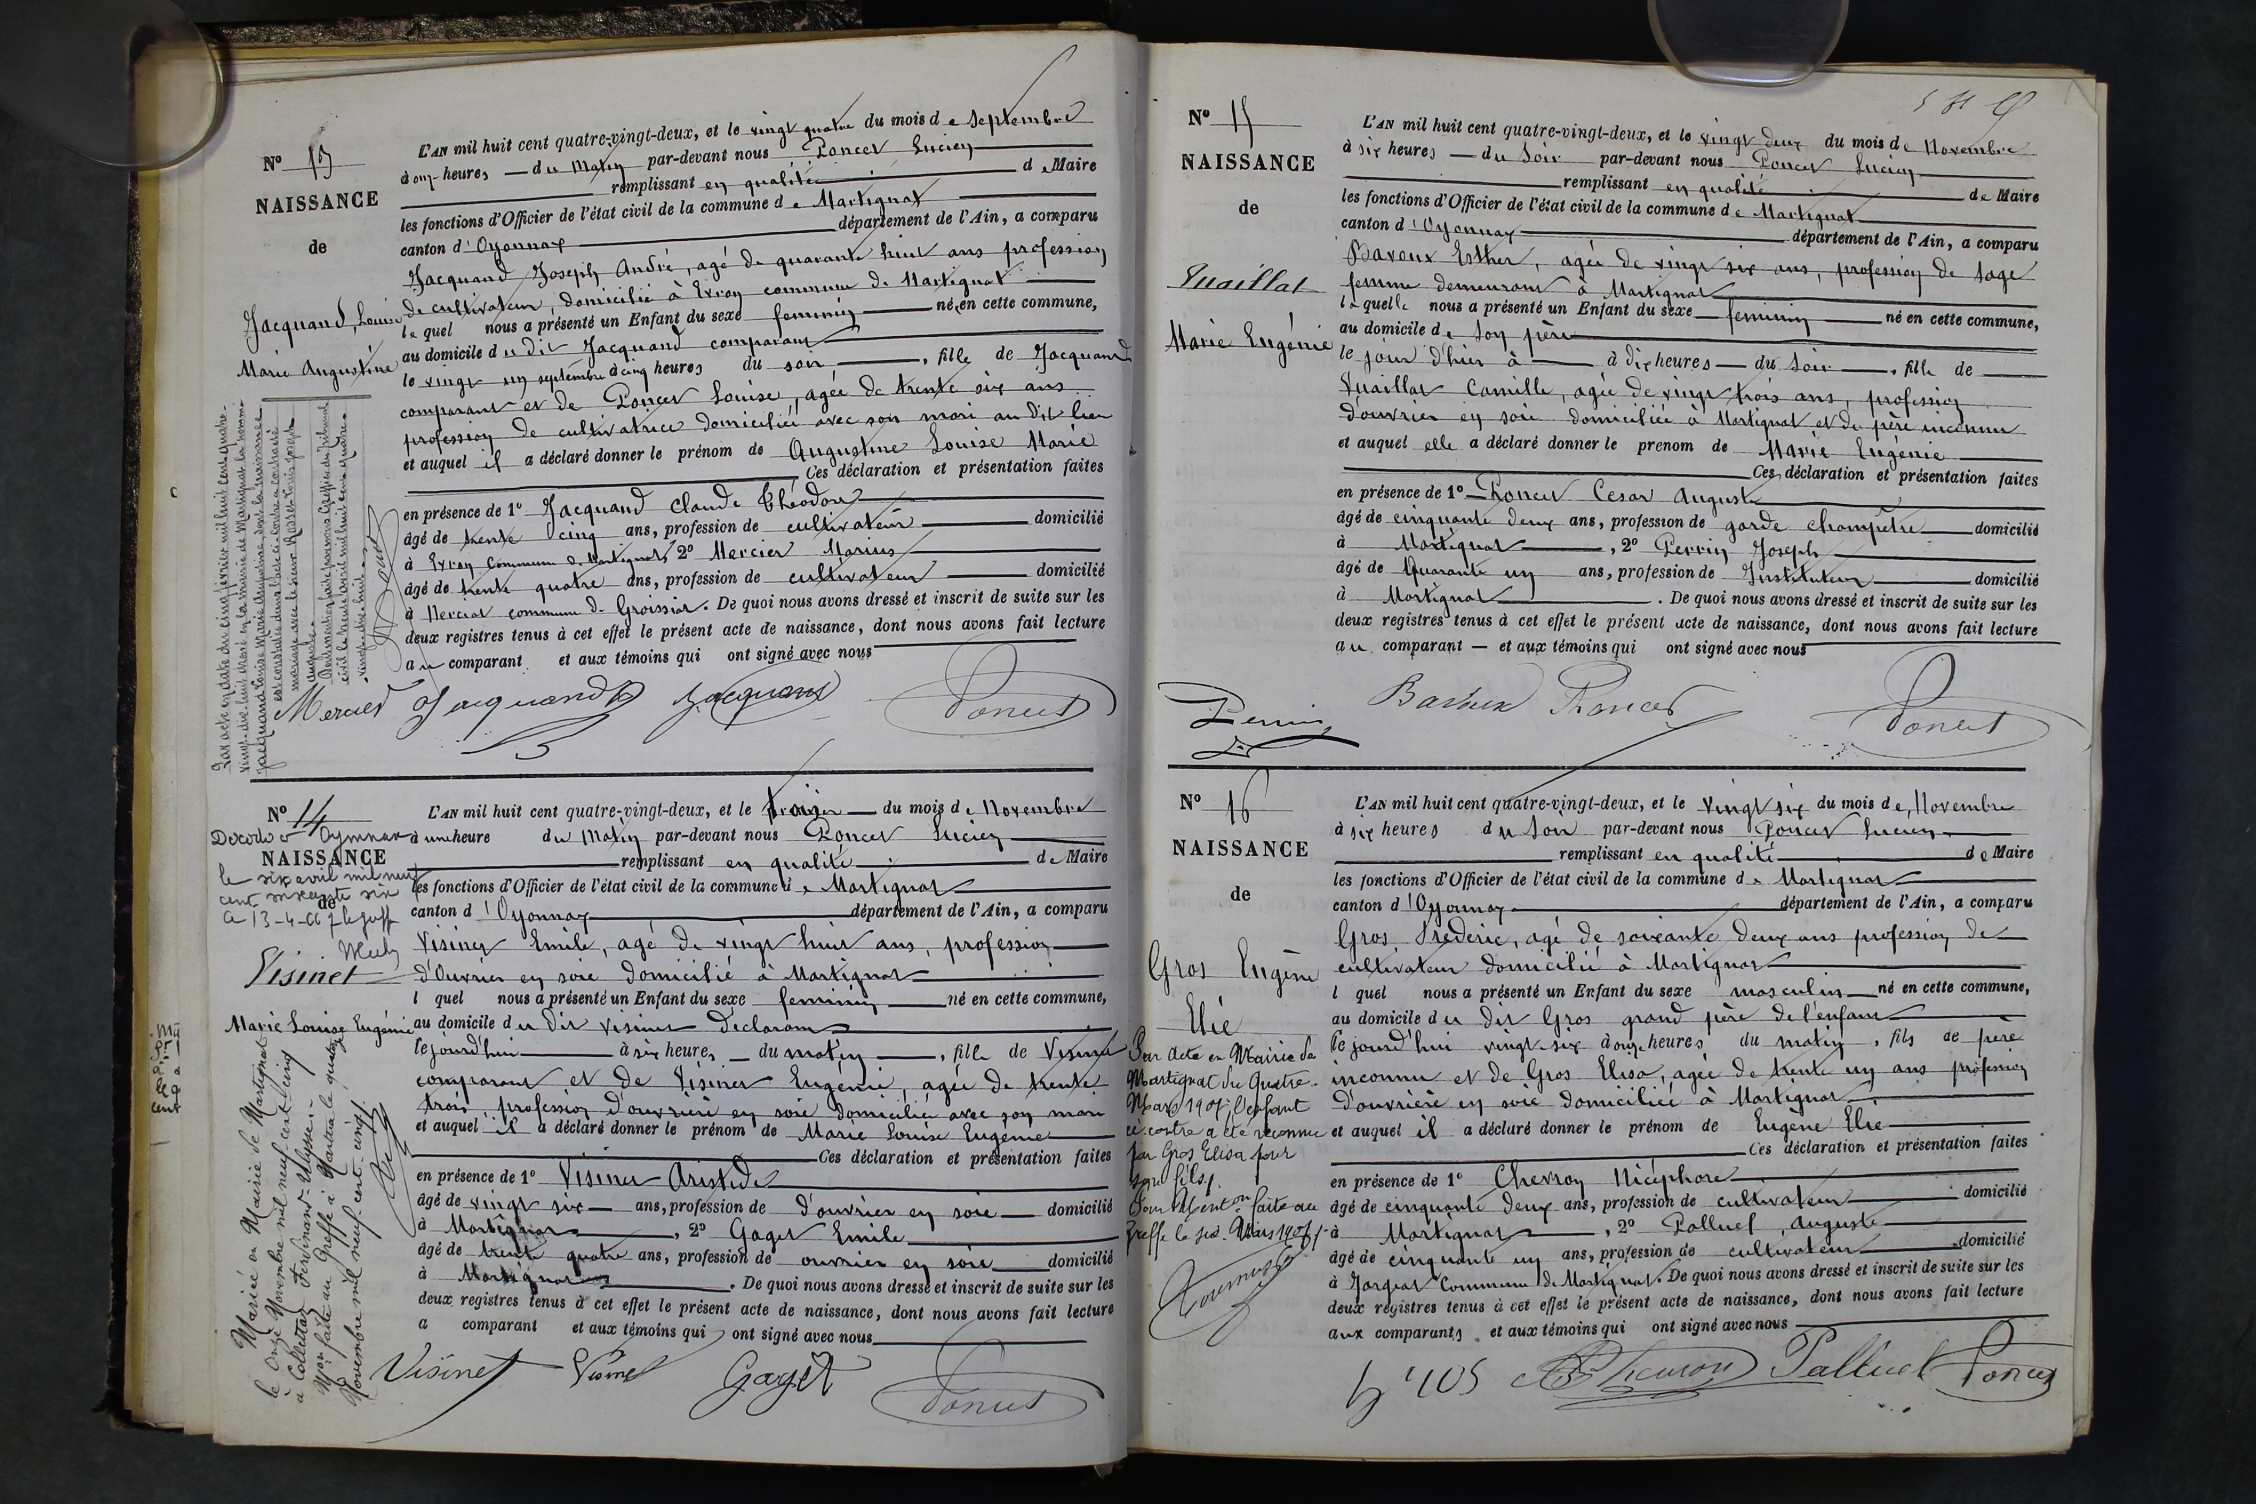 N° 13
NAISSANCE
de
Jacquand Louise
Marie Augustine
L'AN mil huit cent quatre-vingt-deux, et le vingt quatre du mois de Septembre
à onze heures du Matin par-devant nous Poncet Lucien
remplissant en qualité de Maire
les fonctions d'Officier de l'état civil de la commune de Martignat
canton d'Oyonnax département de l'Ain, a comparu
Jacquand Joseph André, agé de quarante huit ans profession
de cultivateur, domicilié à Evron commune de Martignat
lequel nous a présenté un Enfant du sexe feminin né en cette commune,
au domicile du dit Jacquand comparant
le vingt un septembre à cinq heures du soir, fille de Jacquand
comparant et de Poncet Louise, agée de trente six ans
profession de cultivatrice domiciliée avec son mari au dit lieu
et auquel il a déclaré donner le prénom de Augustine Louise Marie
Ces déclaration et présentation faites
en présence de 1° Jacquand Claude Théodore
âgé de trente cinq ans, profession de cultivateur domicilié
à Evron commune de Martignat, 2° Mercier Marius
âgé de trente quatre ans, profession de cultivateur domicilié
à commune de Groissiat. De quoi nous avons dressé et inscrit de suite sur les
deux registres tenus à cet effet le présent acte de naissance, dont nous avons fait lecture
au comparant et aux témoins qui ont signé avec nous
Par acte en date du cinq février mil huit cent quatre-
vingt-dix-huit dressé en la mairie de Martignat la nommée
Jacquand Louise Marie Augustine, dont la naissance
est constatée dans l'acte ci-contre a contracté
mariage avec le sieur Rosset Louis Joseph
Auguste.
civil le trente avril mil huit cent quatre-
vingt-dix-huit.
Mercier Jacquand Jacquand Poncet
N° 14
NAISSANCE
de
Décédée à Oyonnax
le six avril mil neuf
cent soixante six
le 13-4-66 le greff
Visinet
Marie Louise Eugénie
L'AN mil huit cent quatre-vingt-deux, et le trois du mois de Novembre
à une heure du Matin par-devant nous Poncet Lucien
remplissant en qualité de Maire
les fonctions d'Officier de l'état civil de la commune de Martignat
canton d'Oyonnax département de l'Ain, a comparu
Visinet Emile, agé de vingt huit ans, profession
d'Ouvrier en soie domicilié à Martignat
lequel nous a présenté un Enfant du sexe feminin né en cette commune,
au domicile du dit Visinet Declarant
le jourd'hui à six heures du matin, fille de Visinet
comparant et de Visinet Eugénie, agée de trente
trois, profession d'ouvrière en soie domiciliée avec son mari
et auquel il a déclaré donner le prénom de Marie Louise Eugénie
Ces déclaration et présentation faites
en présence de 1° Visinet Aristide
âgé de vingt six ans, profession de d'ouvrier en soie domicilié
à Martignat, 2° Gaget Emile
âgé de trente quatre ans, profession de ouvrier en soie domicilié
à Martignat. De quoi nous avons dressé et inscrit de suite sur les
deux registres tenus à cet effet le présent acte de naissance, dont nous avons fait lecture
a comparant et aux témoins qui ont signé avec nous
Mariée en Mairie de Martignat
le Onze Novembre mil neuf cent cinq
à Collettaz Ferdinand-Ulysse.
Mon faite au Greffe à Nantua le quatorze
Novembre mil neuf cent cinq.
Visinet Visinet Gaget Poncet
N° 15
NAISSANCE
de
Tuaillat
Marie Eugénie
L'AN mil huit cent quatre-vingt-deux, et le vingt deux du mois de Novembre
à six heures du Soir par-devant nous Poncet Lucien
remplissant en qualité de Maire
les fonctions d'Officier de l'état civil de la commune de Martignat
canton d'Oyonnax département de l'Ain, a comparu
Baveux Esther, agée de vingt six ans, profession de sage
femme demeurant à Martignat
laquelle nous a présenté un Enfant du sexe feminin né en cette commune,
au domicile de son père
le jour d'hier à à dix heures du soir, fille de
Tuaillat Camille, agée de vingt trois ans, profession
d'ouvrier en soie domiciliée à Martignat et de père inconnu
et auquel elle a déclaré donner le prenom de Marie Eugénie
Ces déclaration et présentation faites
en présence de 1° Poncet Cesar Auguste
âgé de cinquante deux ans, profession de garde champêtre domicilié
à Martignat, 2° Perrin Joseph
âgé de Quarante un ans, profession de Instituteur domicilié
à Martignat. De quoi nous avons dressé et inscrit de suite sur les
deux registres tenus à cet effet le présent acte de naissance, dont nous avons fait lecture
au comparant et aux témoins qui ont signé avec nous
Perrin Baveux Poncet Poncet
N° 16
NAISSANCE
de
Gros Eugène
Elie
L'AN mil huit cent quatre-vingt-deux, et le vingt six du mois de Novembre
à six heures du Soir par-devant nous Poncet Lucien
remplissant en qualité de Maire
les fonctions d'Officier de l'état civil de la commune de Martignat
canton d'Oyonnax département de l'Ain, a comparu
Gros Fréderic, agé de soixante deux ans profession de
cultivateur domicilié à Martignat
lquel nous a présenté un Enfant du sexe masculin né en cette commune,
au domicile du dit Gros grand père de l'enfant
le jourd'hui vingt-six à onze heures du matin, fils de père
inconnu et de Gros Elisa, agée de trente un ans profession
d'ouvrière en soie domiciliée à Martignat
et auquel il a déclaré donner le prénom de Eugène Elie
Ces déclaration et présentation faites
en présence de 1° Chevron Nicéphore
âgé de cinquante deux ans, profession de cultivateur domicilié
à Martignat, 2° Palluel Auguste
âgé de cinquante un ans, profession de cultivateur domicilié
à Commune de Martignat. De quoi nous avons dressé et inscrit de suite sur les
deux registres tenus à cet effet le présent acte de naissance, dont nous avons fait lecture
aux comparants et aux témoins qui ont signé avec nous
Par Acte en Mairie de
Martignat du Quatre
Mars 1907, l'enfant
ci-contre a été reconnu
par Gros Elisa pour
son fils.
Pour Mention faite au
Greffe le six Mars 1907.
Chevron Palluel Poncet